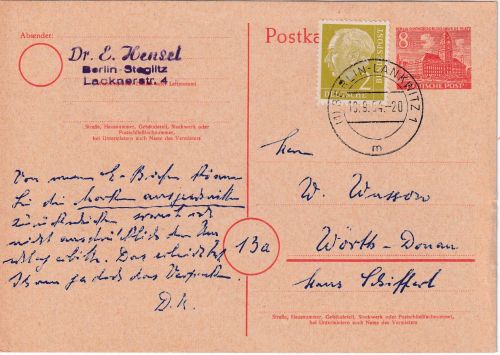 Absender:
Dr. E. Hensel
Berlin-Steglitz
Lacknerstr. 4
Straße, Hausnummer, Gebäudeteil, Stockwerk oder
Postschließfachnummer,
bei Untermietern auch Name des Vermieters
Postka
8
2
DEUTSCHE
BUNDESPOST
DEUTSCHE POST
BERLIN-LANKWITZ 1
18.9.54.-20
m
Von meinen E-Briefen können
Sie die Marken ausgeschnitten
zurückschicken soweit ich
nicht ausdrücklich den
Das erleichtert
ja doch das
D. H.
13a
Herrn
W. Wussow
Wörth-Donau
Haus Schifferl
Straße, Hausnummer, Gebäudeteil, Stockwerk oder Postschließfachnummer,
bei Untermietern auch Name des Vermieters